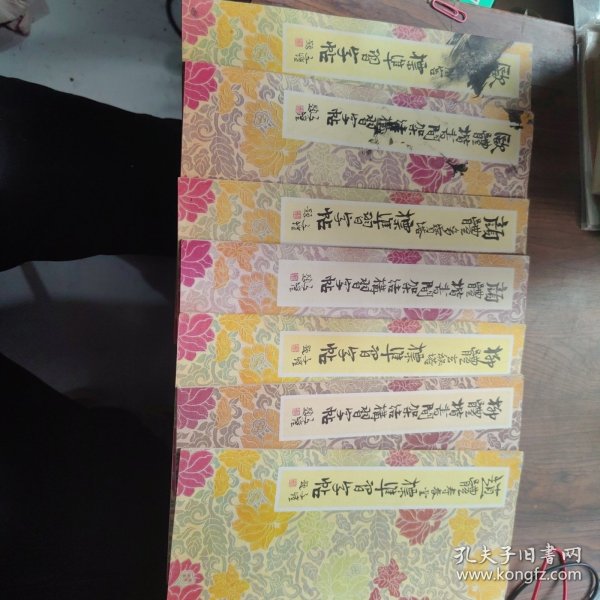 歐體九成宮標準習字帖
歐體楷書間架結構習字帖
顏體多寶塔標準習字帖
顏體楷書間架結構習字帖
柳體玄秘塔標準習字帖
柳體楷書間架結構習字帖
趙體壽春堂標準習字帖
孔夫子旧书网
www.kongfz.com